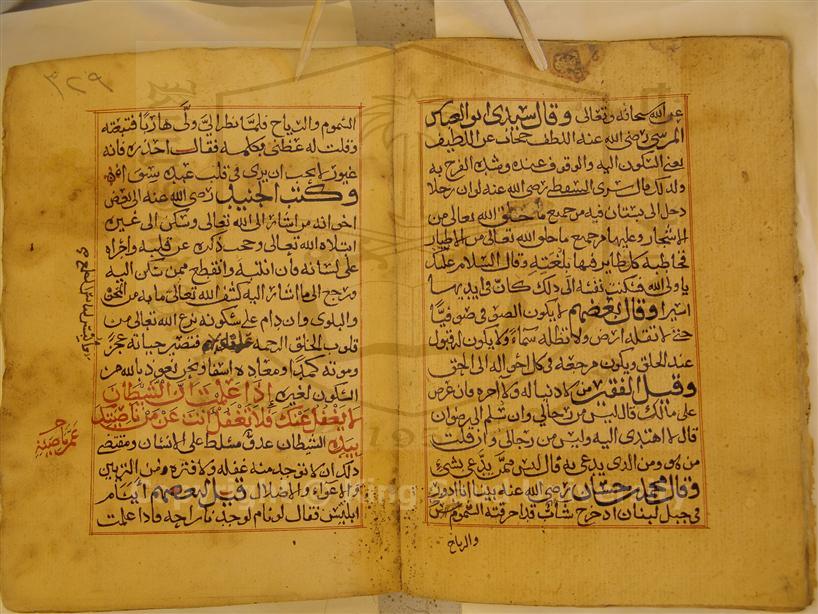 عن الله سبحانه وتعالى وقال سيدي ابو العباس
المرسي رضي الله عنه اللطف حجاب عن اللطيف
يعني السكون اليه والوقوف عنده وشدة الفرح به
ولذلك قال سري السقطي رضي الله عنه لو ان رجلا
دخل الى بستان فيه من جميع ما خلق الله تعالى من
الاشجار وعليها من جميع ما خلق الله تعالى من الاطيار
فخاطبه كل طاير فيها بلغته وقال السلام عليك
يا ولي الله فسكنت نفسه الى ذلك كان في ايديها
اسيرا وقال بعضهم لا يكون الصوفي صوفيا
حتى لا تقله ارض ولا تظله سماء ولا يكون له قبول
عند الخلق ويكون مرجعه في كل احواله الى الحق
وقيل الفقير من لا دنيا له ولا اخرة فان عرض
على مالك قال ليس من رجالي وان سلم الى رضوان
قال لا اهتدي اليه وليس من رجالي وان قلت
من هو ومن الذي يدعى به قال ليس ممن يدعى بشيء
وقال محمد بن حسان رضي الله عنه بينا انا ادور
في جبل لبنان اذ خرج شاب قد احرقته السموم
والرياح
٣٢٩
السموم والرياح فلما نظر الي ولى هاربا فتبعته
وقلت له عظني بكلمة فقال احذره فانه
غيور لا يحب ان يرى في قلب عبده سواه
وكتب الجنيد رضي الله عنه الى بعض
اخوانه من اشار الى الله تعالى وسكن الى غيره
ابتلاه الله تعالى وحجب ذكره عن قلبه واجراه
على لسانه فان انتبه وانقطع ممن سكن اليه
ورجع الى ما اشار اليه كشف الله تعالى ما به من المحن
والبلوى وان دام على سكونه نزع الله تعالى من
قلوب الخلق الرحمة عليه فتصير حياته عجزا
وموته كمدا ومعاده اسفا ونحن نعوذ بالله من
السكون لغيره اذا علمت ان الشيطان
لا يغفل عنك فلا تغفل انت عن من ناصيتك
بيده الشيطان عدو مسلط على الانسان ومقتضى
ذلك ان لا توجد منه غفلة ولا فترة من التزيين
والاغواء والاضلال قيل لبعضهم اينام
ابليس فقال لو نام لوجدنا راحة فاذا علمت